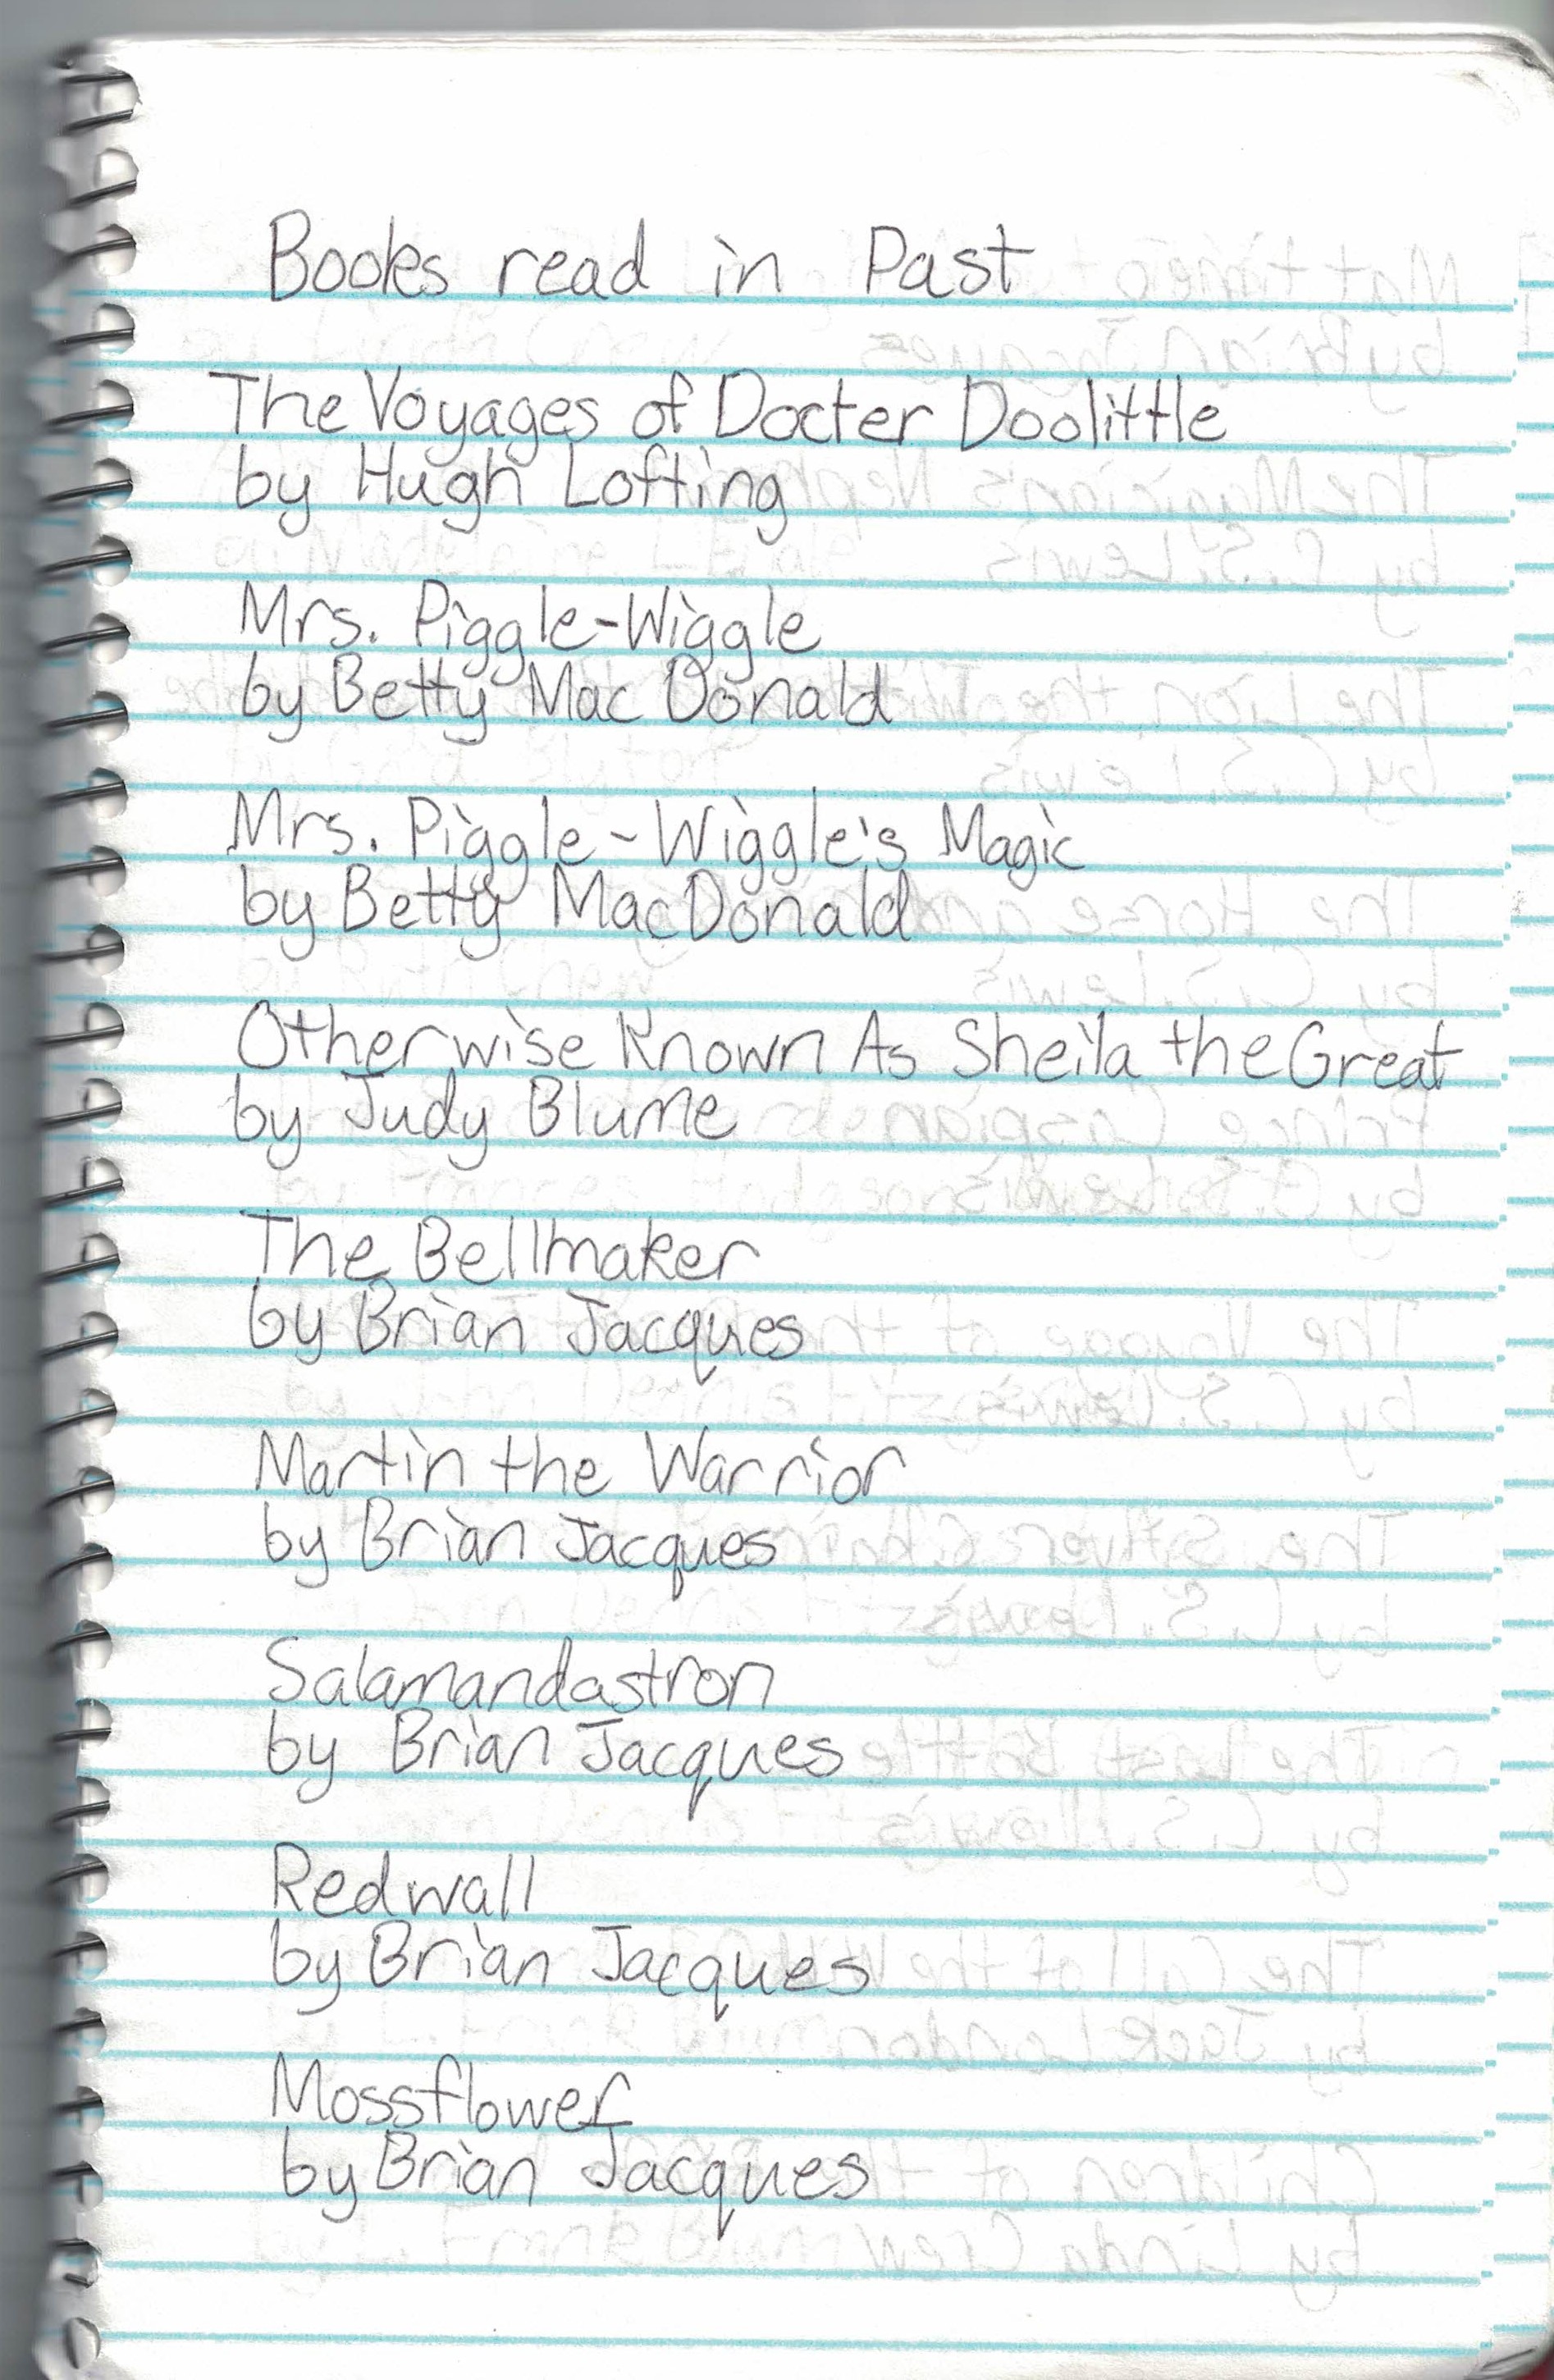 Books read in Past
The Voyages of Docter Doolittle
by Hugh Lofting
Mrs. Piggle-Wiggle
by Betty Mac Donald
Mrs. Piggle-Wiggle's Magic
by Betty MacDonald
Otherwise Known As Sheila the Great
by Judy Blume
The Bellmaker
by Brian Jacques
Martin the Warrior
by Brian Jacques
Salamandastron
by Brian Jacques
Redwall
by Brian Jacques
Mossflower
by Brian Jacques